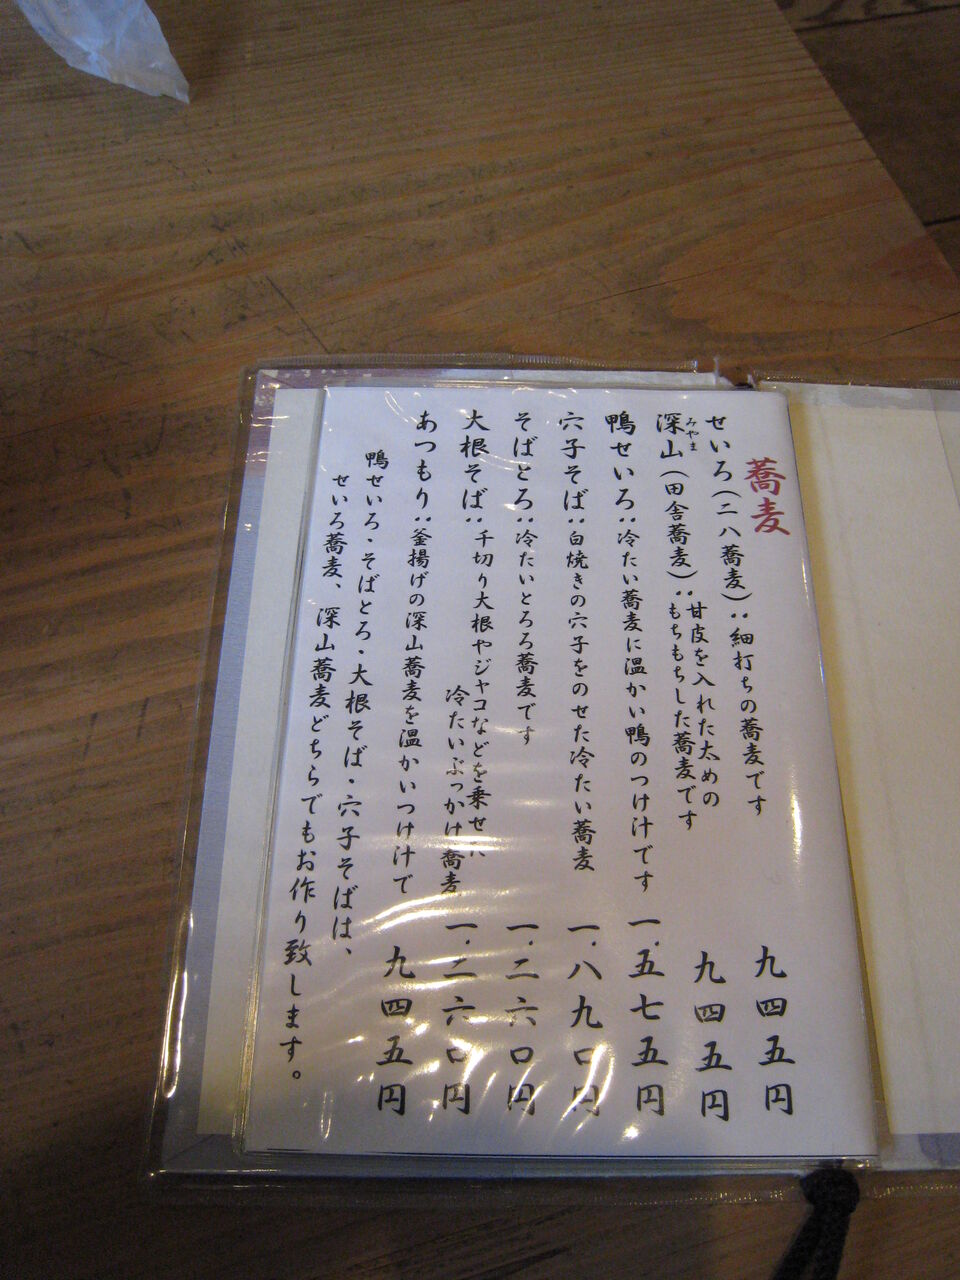 蕎麦
せいろ(二八蕎麦)：細打ちの蕎麦です 九四五円
みやま
深山(田舎蕎麦)：甘皮を入れた太めの
もちもちした蕎麦です 九四五円
鴨せいろ：冷たい蕎麦に温かい鴨のつけ汁です 一.五七五円
穴子そば：白焼きの穴子をのせた冷たい蕎麦 一.八九〇円
そばとろ：冷たいとろろ蕎麦です 一.二六〇円
大根そば：千切り大根やジャコなどを乗せた
冷たいぶっかけ蕎麦 一.二六〇円
あつもり：釜揚げの深山蕎麦を温かいつけ汁で 九四五円
鴨せいろ・そばとろ・大根そば・穴子そばは、
せいろ蕎麦、深山蕎麦どちらでもお作り致します。